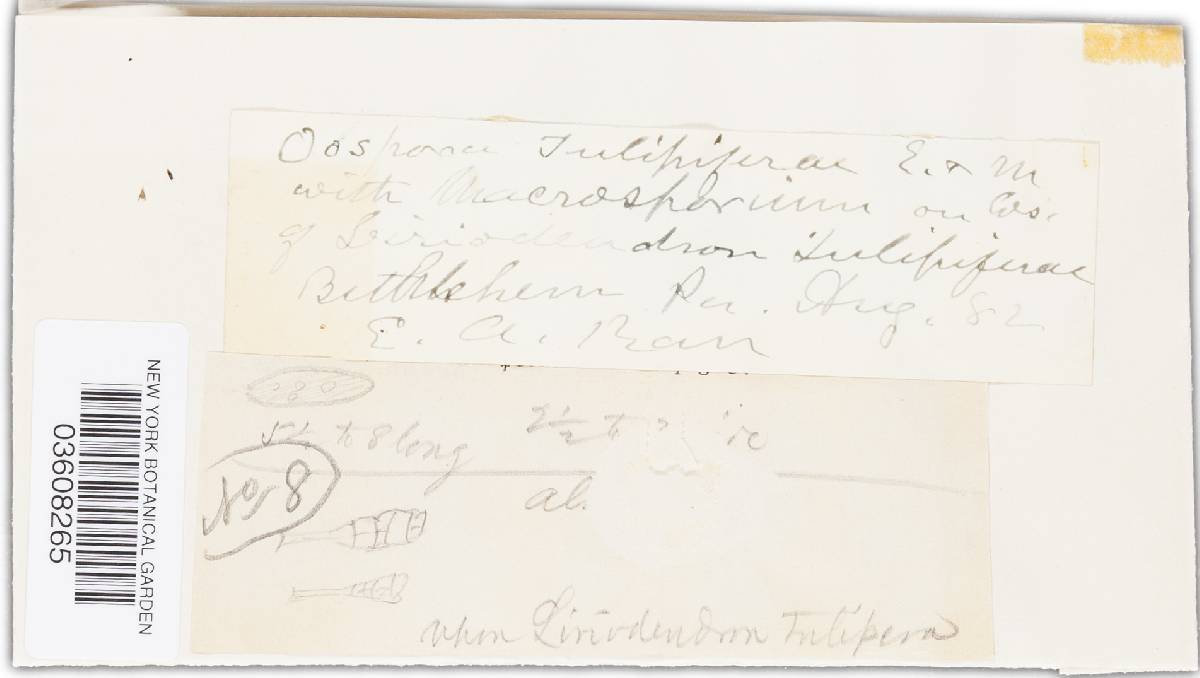 Oospora Tulipiferae E. & M
with Macrosporium on Cos.
of Liriodendron Tulipiferae
Bethlehem Pa. Aug. 82
E. A. Rau
5½ to 8 long 2½ to
No 8
al.
upon Liriodendron Tulipera
NEW YORK BOTANICAL GARDEN
03608265